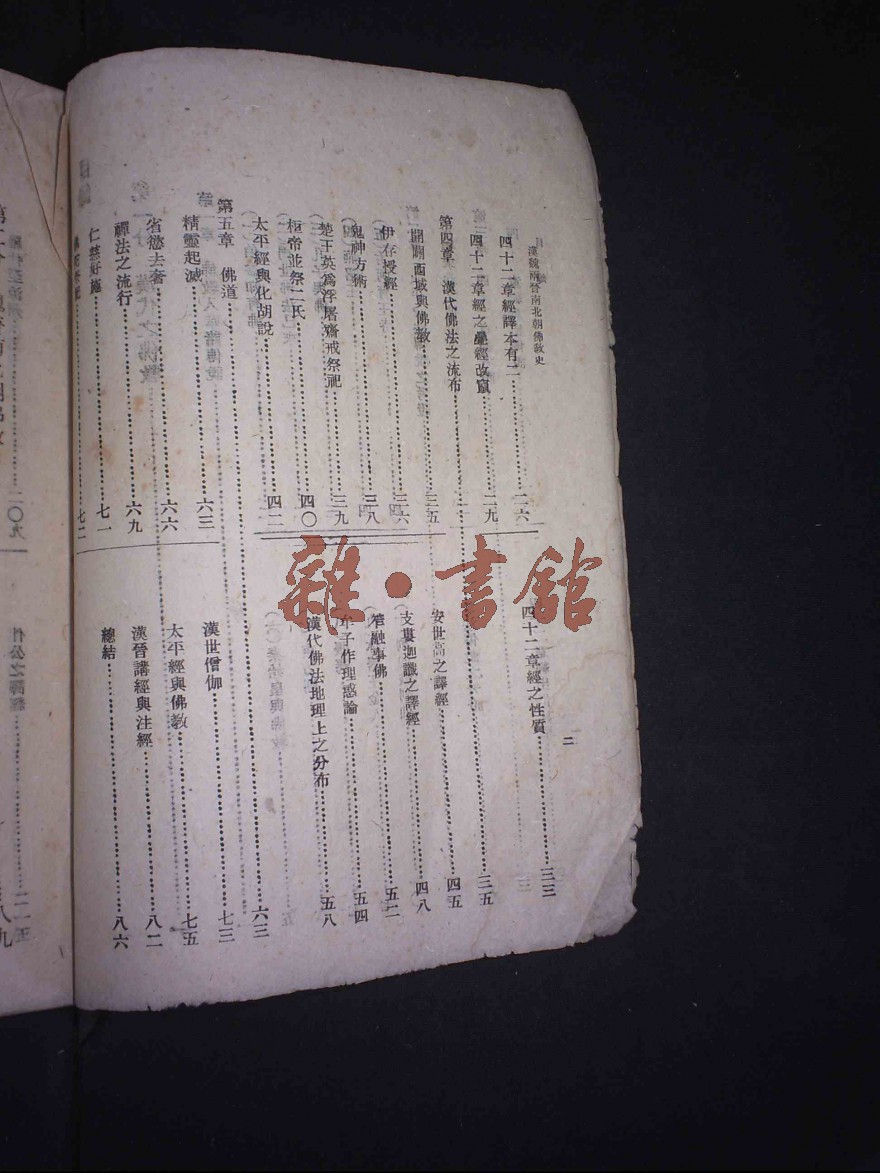 漢魏兩晉南北朝佛教史
二
四十二章經譯本有二……二六
四十二章經之疊經改竄……二九
四十二章經之性質……三三
第四章 漢代佛法之流布……三五
開闢西域與佛教……三五
伊存授經……三六
鬼神方術……三八
楚王英爲浮屠齋戒祭祀……三九
桓帝並祭二氏……四〇
太平經與化胡說……四二
安世高之譯經……四五
支婁迦讖之譯經……四八
笮融事佛……五二
牟子作理惑論……五四
漢代佛法地理上之分布……五八
第五章 佛道……六三
精靈起滅……六三
省慾去奢……六六
禪法之流行……六九
仁慈好施……七一
七二
漢世僧伽……七三
太平經與佛教……七五
漢晉講經與注經……八二
總結……八六
二〇九
雜·書館